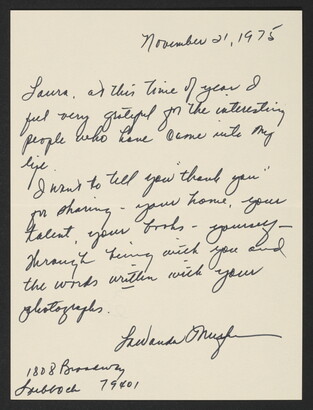 November 21, 1975
Laura, at this time of year I
feel very grateful for the interesting
people who have come into my
life.
I want to tell you "thank you"
for sharing - your home, your
talent, your books - yourself -
through being with you and
the words written with your
photographs.
LaWanda
1808 Broadway
Lubbock 79401